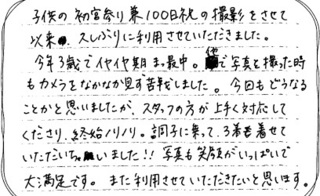 子供の初宮参り兼100日祝の撮影をさせて
以来、久しぶりに利用させていただきました。
今年3歳でイヤイヤ期真っ最中。他で写真を撮った時
もカメラをなかなか見ず苦戦しました。今回もどうなる
ことかと思いましたが、スタッフの方が上手く対応して
くださり、終始ノリノリ。調子に乗って、3着も着せて
いただいちゃいました!!写真も笑顔がいっぱいで
大満足です。また利用させていただきたいと思います。